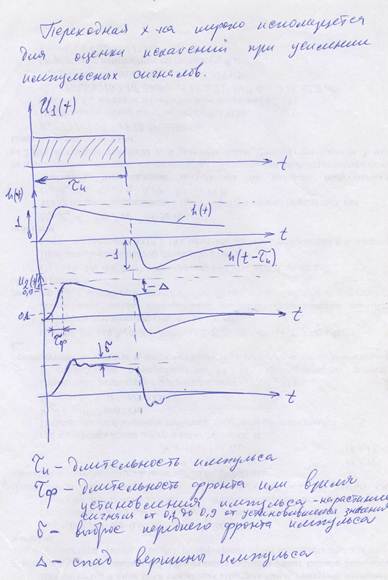 Переходная х-ка широко используется
для оценки искажений при усилении
импульсных сигналов.
U₁(t)
t
τи
h(t)
1
h(t)
t
-1
h(t-τи)
U₂(t)
0,9
Δ
0,1
t
τф
δ
t
τи - длительность импульса
τф - длительность фронта или время
установления импульса - нарастание
сигнала от 0,1 до 0,9 от установившегося значения
δ - выброс переднего фронта импульса
Δ - спад вершины импульса